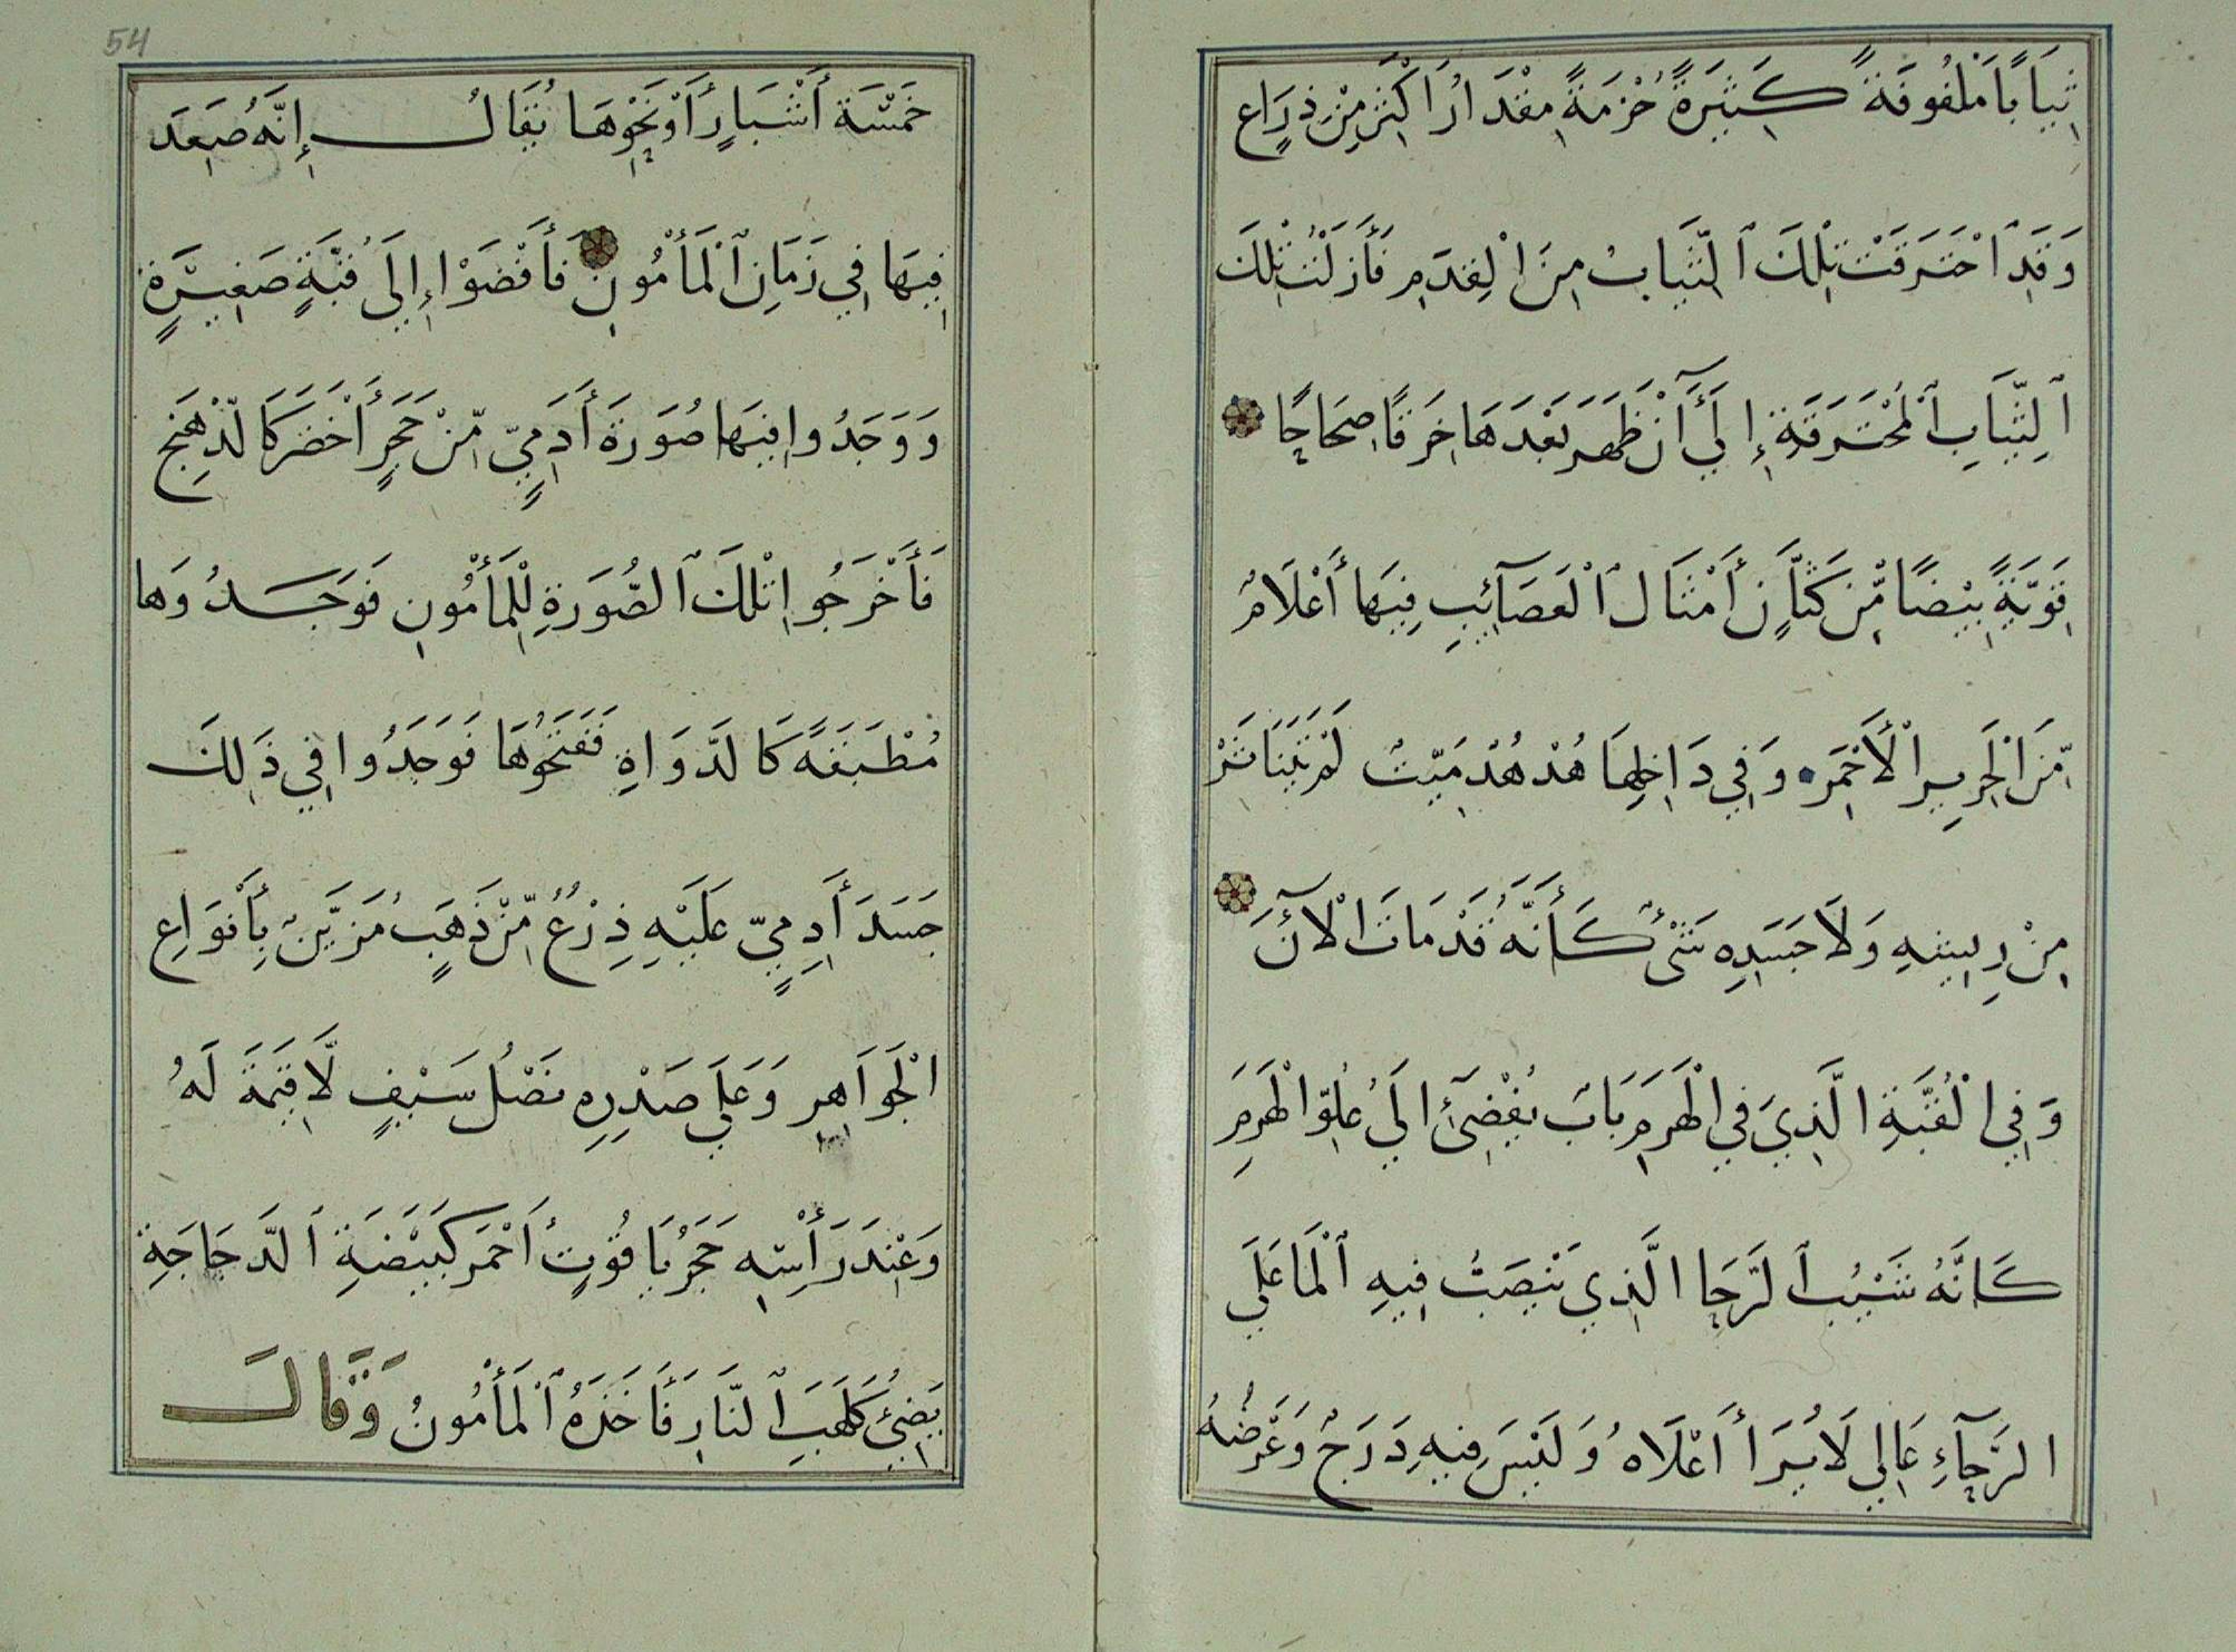 ثِيَابًا مَلْفُوفَةً كَثِيرَةً حُزْمَةً مِقْدَارُ أَكْثَرَ مِنْ ذِرَاعٍ
وَقَدِ ٱحْتَرَقَتْ تِلْكَ ٱلثِّيَابُ مِنَ الْقِدَمِ فَأَزَلْتُ تِلْكَ
ٱلثِّيَابِ ٱلْمُحْتَرَقَةِ إِلَى أَنْ ظَهَرَ بَعْدَهَا خِرَقًا صِحَاحًا
قَوِيَّةً بِيْضًا مِّنْ كَتَّانٍ أَمْثَالَ ٱلْعَصَآئِبِ فِيهَا أَعْلَامٌ
مِّنَ الْحَرِيرِ الْأَحْمَرِ وَفِي دَاخِلِهَا هُدْهُدْ مَيِّتٌ لَمْ يَتَنَاثَرْ
مِنْ رِيشِهِ وَلَا جَسَدِهِ شَىْءٌ كَأَنَّهُ قَدْ مَاتَ الْآنَ
وَفِي الْقُبَّةِ الَّذِي فِي الْهَرَمِ بَابٌ يُفْضِىٓ إِلَى عُلُوِّ الْهَرَمِ
كَانَّهُ شَيْبُ ٱلرَّحَا الَّذِي يَنْصَبُّ فِيهِ ٱلْمَا عَلَى
الرَّحَآءِ عَالِي لَا يُرَا أَعْلَاهُ وَلَيْسَ فِيهِ دَرَجٌ وَعَرْضُهُ
54
خَمْسَة أَشْبَارٍ أَوْ نَحْوِهَا يُقَالُ إِنَّهُ صَعِدَ
فِيهَا فِي زَمَانِ ٱلْمَأْمُونِ فَأَفْضَوْا إِلَى قُبَّةٍ صَغِيْرَةٍ
وَوَجَدُوا فِيهَا صُوَرَةَ أَدَمِيٍّ مِّنْ حَجَرٍ أَخْضَرَ كَالدِّهْنَجِ
فَأَخْرَجُوا تِلْكَ ٱلصُّوَرَةِ لِلْمَأْمُونِ فَوَجَدُوهَا
مُطْبَقَةً كَالدَّوَاةِ فَفَتَحُوهَا فَوَجَدُوا فِي ذَلِكَ
جَسَدَ أَدَمِيٍّ عَلَيْهِ ذِرْعٌ مِّنْ ذَهَبٍ مُزَيَّنْ بِأَنْوَاعِ
الْجَوَاهِرِ وَعَلَى صَدْرِهِ نَصْلُ سَيْفٍ لَّا قِيمَةَ لَهُ
وَعِنْدَ رَأْسِهِ حَجَرُ يَاقُوتٍ أَحْمَر كَبَيْضَةِ ٱلدَّجَاجَةِ
يُضِئُ كَلَهَبِ ٱلنَّارِ فَأَخَذَهُ ٱلْمَأْمُونُ وَقَالَ